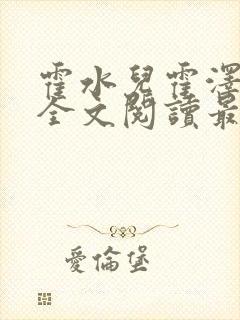 霍水兒霍澤
全文閱讀最
愛倫堡